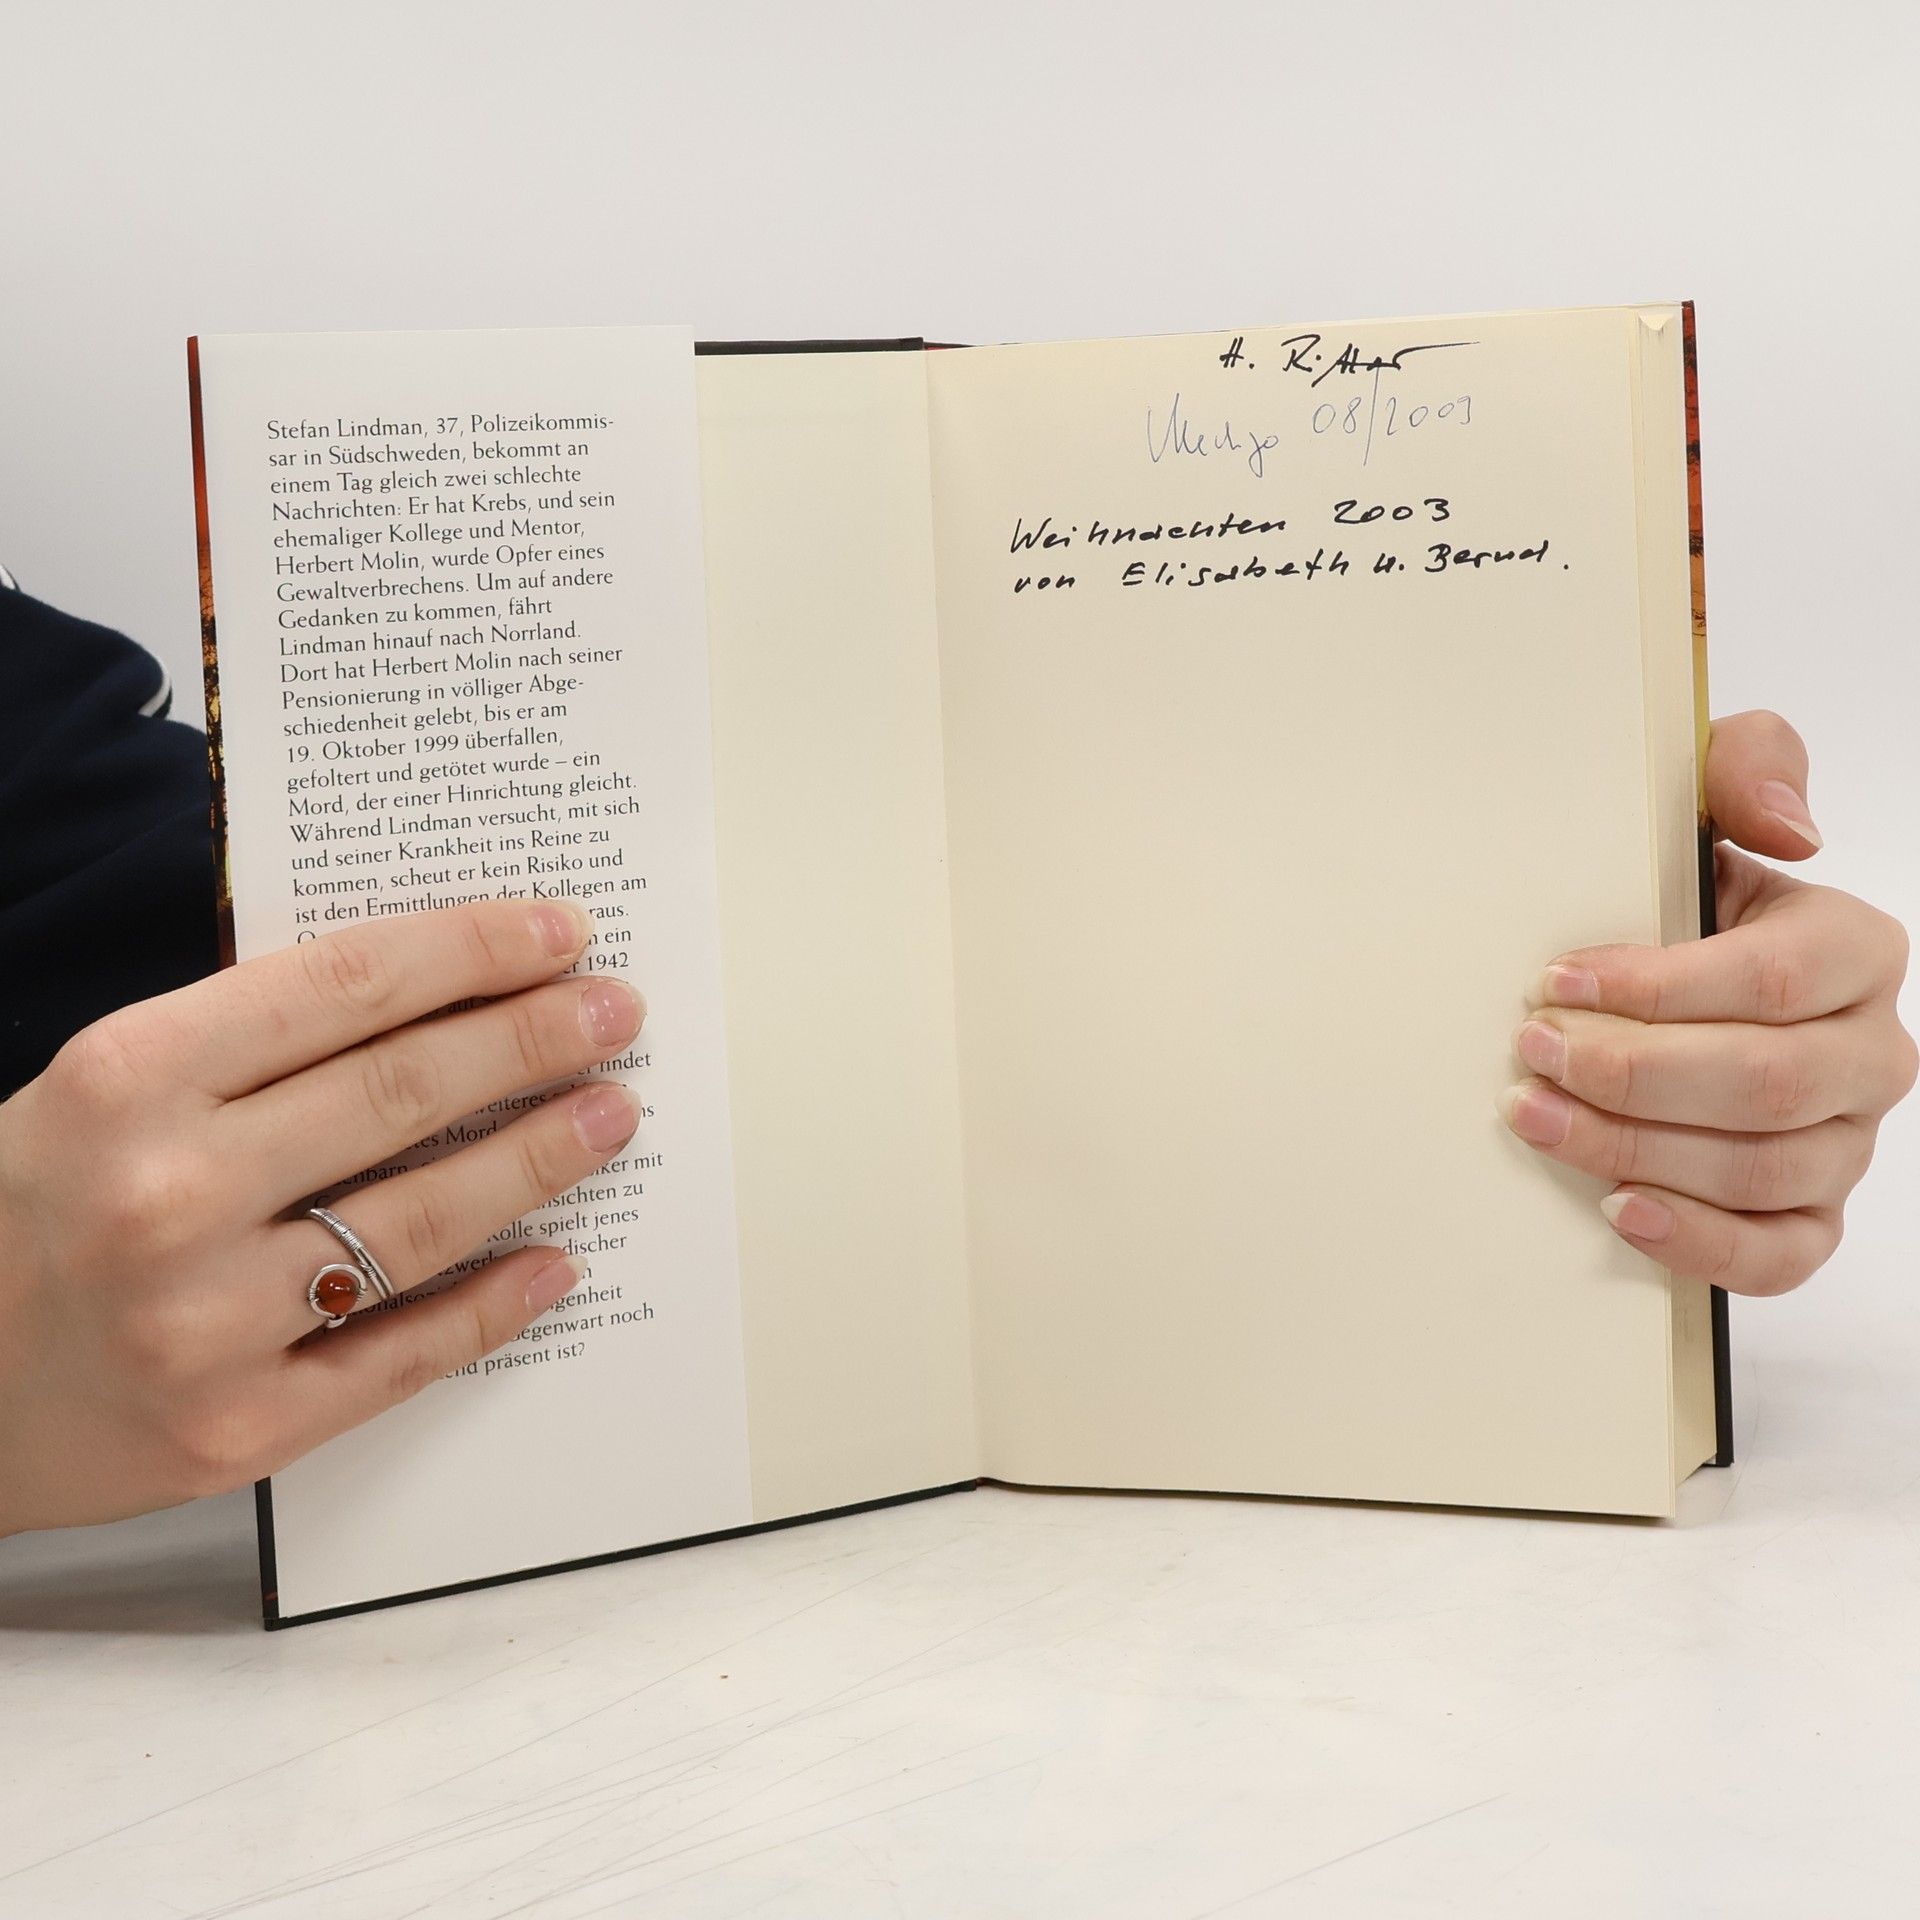 Stefan Lindman, 37, Polizeikommis-
sar in Südschweden, bekommt an
einem Tag gleich zwei schlechte
Nachrichten: Er hat Krebs, und sein
ehemaliger Kollege und Mentor,
Herbert Molin, wurde Opfer eines
Gewaltverbrechens. Um auf andere
Gedanken zu kommen, fährt
Lindman hinauf nach Norrland.
Dort hat Herbert Molin nach seiner
Pensionierung in völliger Abge-
schiedenheit gelebt, bis er am
19. Oktober 1999 überfallen,
gefoltert und getötet wurde – ein
Mord, der einer Hinrichtung gleicht.
Während Lindman versucht, mit sich
und seiner Krankheit ins Reine zu
kommen, scheut er kein Risiko und
ist den Ermittlungen der Kollegen am
raus.
ein
1942
findet
weiteres
Mord
mit
zu
spielt jenes
Gegenwart noch
präsent ist?
H. Ritter
08/2009
Weihnachten 2003
von Elisabeth u. Bernd.